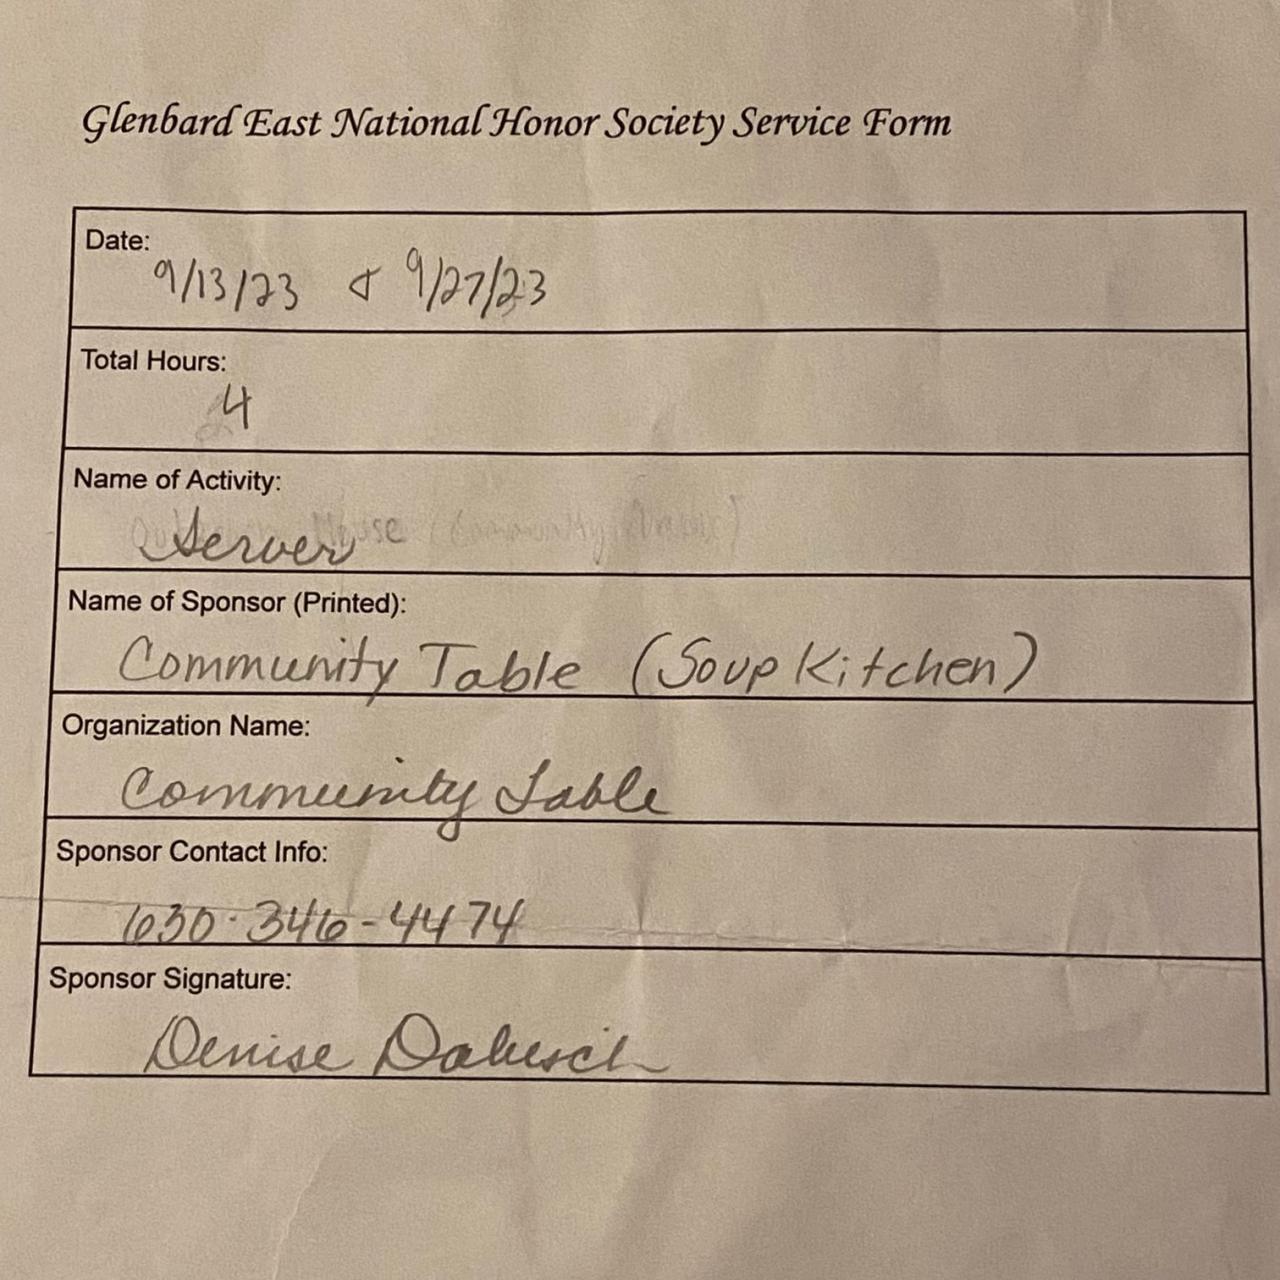 Glenbard East National Honor Society Service Form
Date:
9/13/23 & 9/27/23
Total Hours:
4
Name of Activity:
Server
Name of Sponsor (Printed):
Community Table (Soup Kitchen)
Organization Name:
Community Table
Sponsor Contact Info:
630-346-4474
Sponsor Signature:
Denise